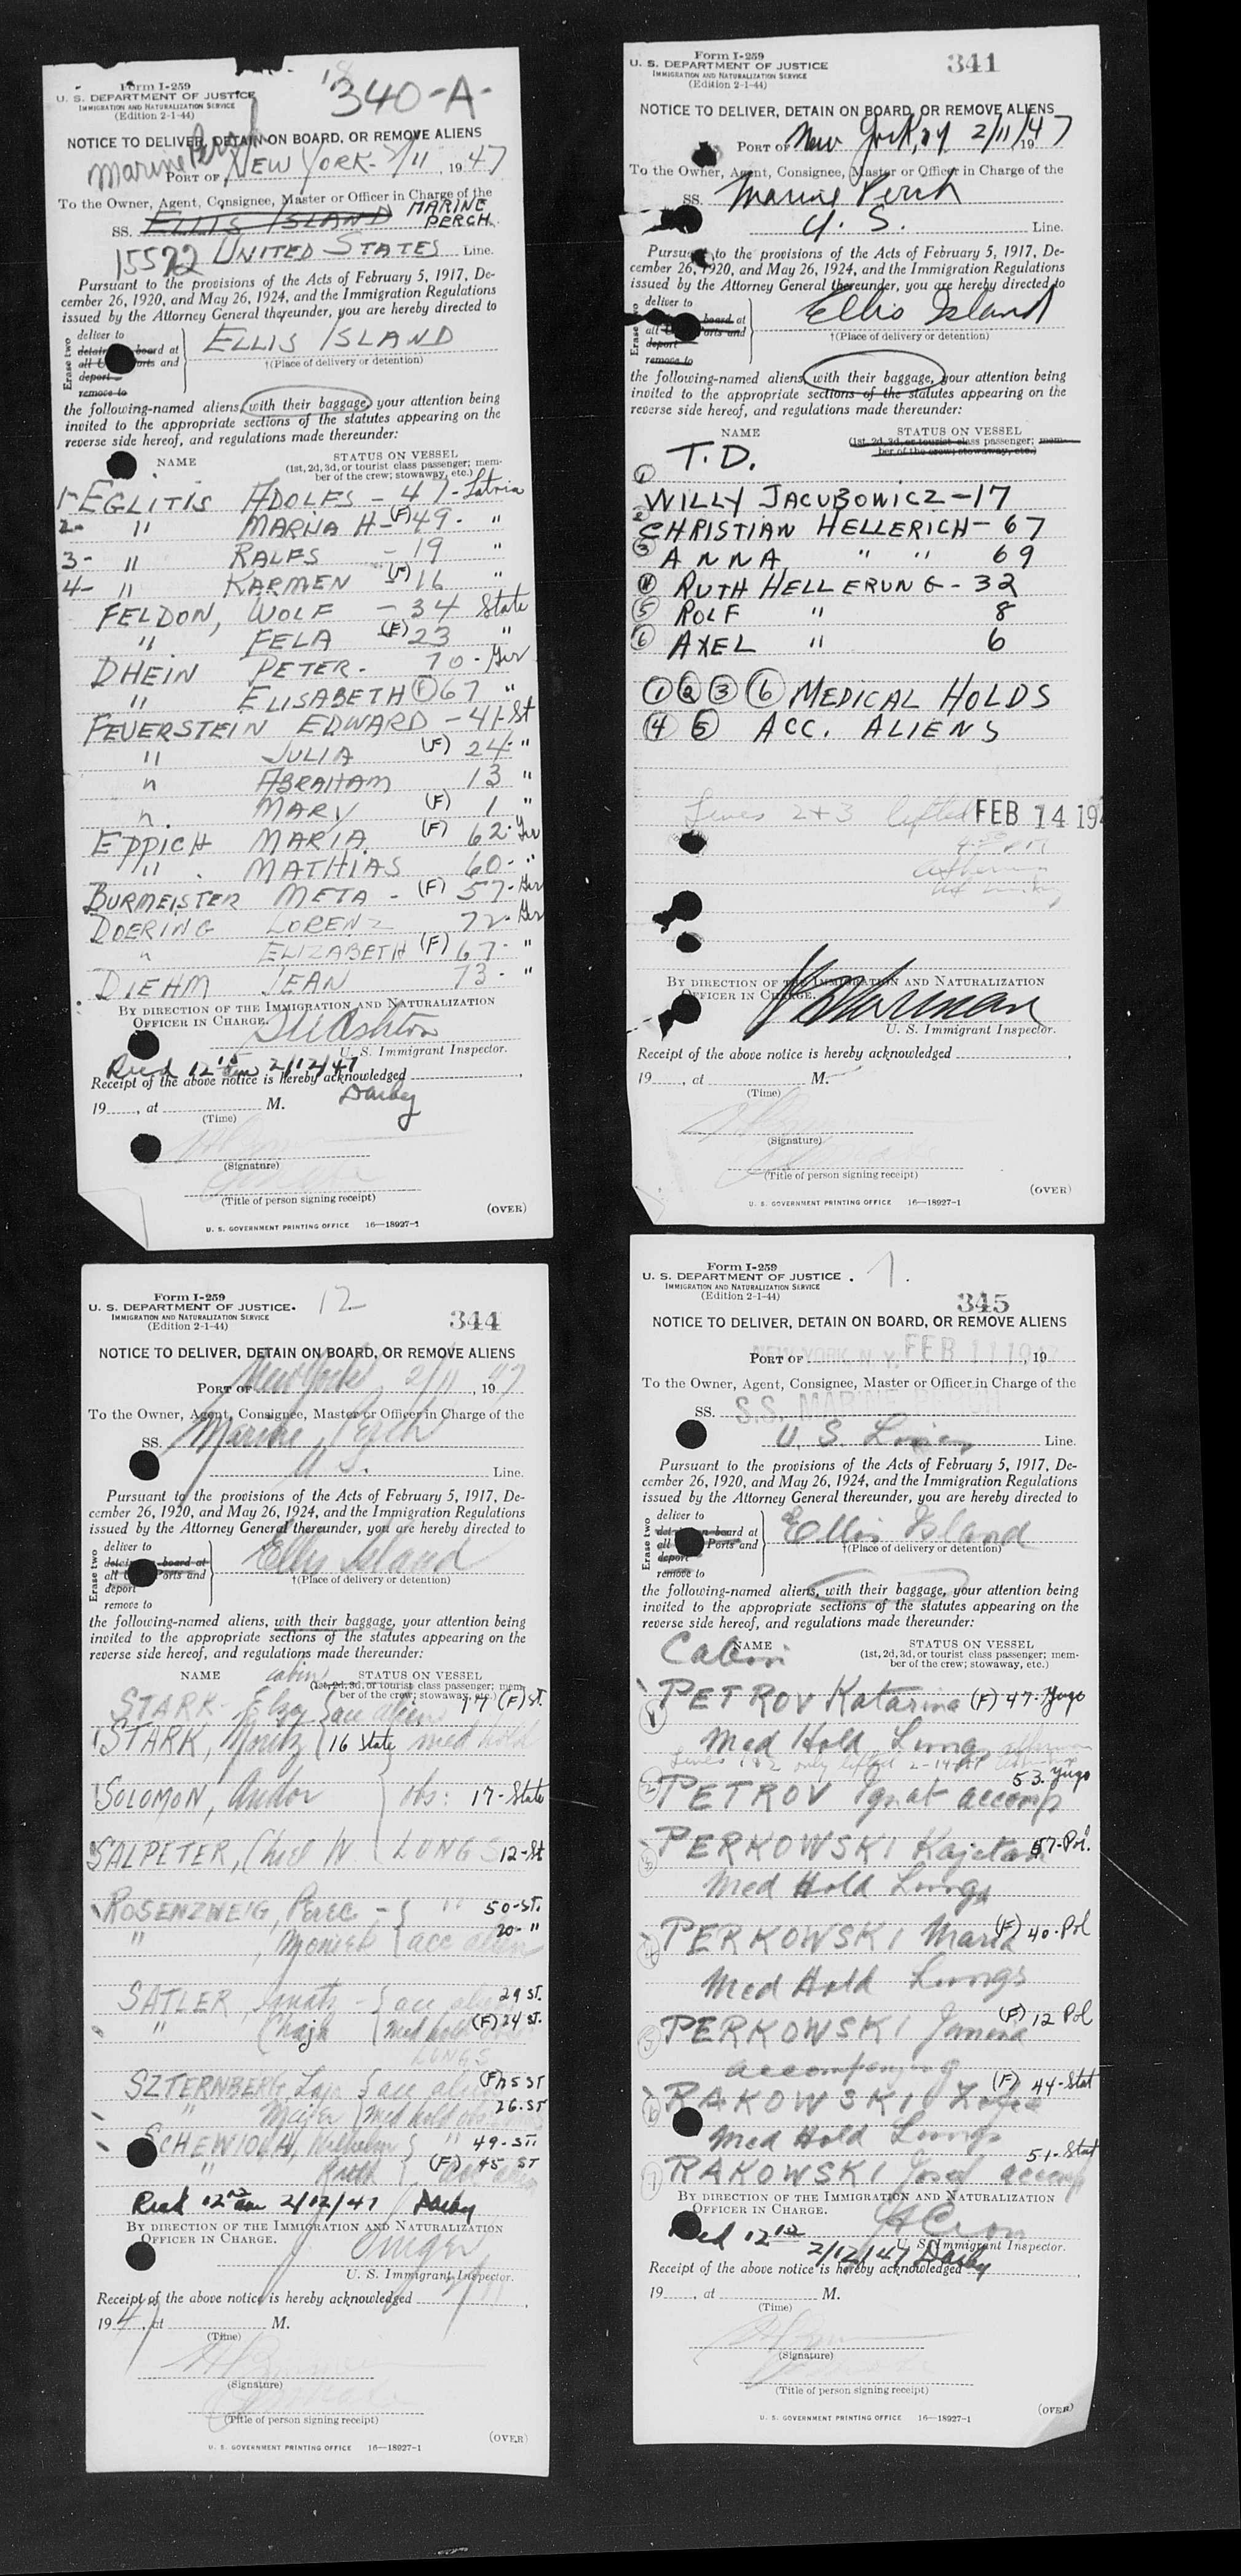 Form I-259
U. S. DEPARTMENT OF JUSTICE
IMMIGRATION AND NATURALIZATION SERVICE
(Edition 2-1-44)
340-A-
NOTICE TO DELIVER, DETAIN ON BOARD, OR REMOVE ALIENS
Marine Perch
PORT OF NEW YORK- 2/11, 1947
To the Owner, Agent, Consignee, Master or Officer in Charge of the
SS. ELLIS ISLAND MARINE PERCH
15572 UNITED STATES Line.
Pursuant to the provisions of the Acts of February 5, 1917, De-
cember 26, 1920, and May 26, 1924, and the Immigration Regulations
issued by the Attorney General thereunder, you are hereby directed to
Erase two
deliver to
detain board at
all U orts and
deport
remove to
ELLIS ISLAND
†(Place of delivery or detention)
the following-named aliens, with their baggage, your attention being
invited to the appropriate sections of the statutes appearing on the
reverse side hereof, and regulations made thereunder:
NAME STATUS ON VESSEL
(1st, 2d, 3d, or tourist class passenger; mem-
ber of the crew; stowaway, etc.)
1- EGLITIS ADOLFS - 47- Latvia
2- " MARIJA H- (F) 49- "
3- " RALFS - 19 "
4- " KARMEN (F) 16 "
FELDON, WOLF - 34 State
" FELA (F) 23 "
DHEIN PETER - 70- Ger
" ELISABETH (F) 67 "
FEUERSTEIN EDWARD - 41-St
" JULIA (F) 24- "
" ABRAHAM 13 "
" MARY (F) 1 "
EPPICH MARIA (F) 62- Ger
" MATHIAS 60- "
BURMEISTER META - (F) 57- Ger
DOERING LORENZ 72- Ger
" ELIZABETH (F) 67- "
DIEHM JEAN 73- "
BY DIRECTION OF THE IMMIGRATION AND NATURALIZATION
OFFICER IN CHARGE.
Ashton
U. S. Immigrant Inspector.
Recd 12 15 am 2/12/47
Receipt of the above notice is hereby acknowledged
Darby
19 , at M.
(Time)
(Signature)
(Title of person signing receipt)
(OVER)
U. S. GOVERNMENT PRINTING OFFICE 16—18927-1
Form I-259
U. S. DEPARTMENT OF JUSTICE
IMMIGRATION AND NATURALIZATION SERVICE
(Edition 2-1-44)
341
NOTICE TO DELIVER, DETAIN ON BOARD, OR REMOVE ALIENS
PORT OF New York, NY 2/11/1947
To the Owner, Agent, Consignee, Master or Officer in Charge of the
SS. Marine Perch
U. S. Line.
Pursu to the provisions of the Acts of February 5, 1917, De-
cember 26, 1920, and May 26, 1924, and the Immigration Regulations
issued by the Attorney General thereunder, you are hereby directed to
Erase two
deliver to
board at
all orts and
deport
remove to
Ellis Island
†(Place of delivery or detention)
the following-named aliens, with their baggage, your attention being
invited to the appropriate sections of the statutes appearing on the
reverse side hereof, and regulations made thereunder:
NAME STATUS ON VESSEL
(1st, 2d, 3d, or tourist class passenger; mem-
ber of the crew; stowaway, etc.)
T.D.
① WILLY JACUBOWICZ - 17
② CHRISTIAN HELLERICH - 67
③ ANNA " " 69
④ RUTH HELLERUNG - 32
⑤ ROLF " 8
⑥ AXEL " 6
① ② ③ ⑥ MEDICAL HOLDS
④ ⑤ ACC. ALIENS
Lines 2+3 lifted FEB 14 19
BY DIRECTION OF THE IMMIGRATION AND NATURALIZATION
OFFICER IN CHARGE.
U. S. Immigrant Inspector.
Receipt of the above notice is hereby acknowledged
19 , at M.
(Time)
(Signature)
(Title of person signing receipt)
(OVER)
U. S. GOVERNMENT PRINTING OFFICE 16—18927-1
Form I-259
U. S. DEPARTMENT OF JUSTICE.
IMMIGRATION AND NATURALIZATION SERVICE
(Edition 2-1-44)
12
344
NOTICE TO DELIVER, DETAIN ON BOARD, OR REMOVE ALIENS
PORT OF New York 2/11, 1947
To the Owner, Agent, Consignee, Master or Officer in Charge of the
SS. Marine Perch
U. S. Line.
Pursuant to the provisions of the Acts of February 5, 1917, De-
cember 26, 1920, and May 26, 1924, and the Immigration Regulations
issued by the Attorney General thereunder, you are hereby directed to
Erase two
deliver to
board at
all orts and
deport
remove to
Ellis Island
†(Place of delivery or detention)
the following-named aliens, with their baggage, your attention being
invited to the appropriate sections of the statutes appearing on the
reverse side hereof, and regulations made thereunder:
NAME cabin STATUS ON VESSEL
(1st, 2d, 3d, or tourist class passenger; mem-
ber of the crew; stowaway, etc.)
STARK- acc alien 17 (F) St.
STARK, Moritz 16 State med hold
SOLOMON, Andor obs: 17-State
SALPETER, LUNGS 12-St
ROSENZWEIG, Perec - " 50-St.
" , Moniek acc alien 20- "
SATLER, Ignatz - acc alien 29 St.
" Chaja med hold (F) 24 St.
LUNGS
SZTERNBERG, acc alien (F) 25 ST
" Majer med hold obs 26-ST
SCHEWIOLA, Wilhelm " 49-ST.
" Ruth (F) 45 ST
Recd 12 am 2/12/47 Darby
BY DIRECTION OF THE IMMIGRATION AND NATURALIZATION
OFFICER IN CHARGE.
Singer
U. S. Immigrant Inspector.
Receipt of the above notice is hereby acknowledged
1947, at M.
(Time)
(Signature)
(Title of person signing receipt)
(OVER)
U. S. GOVERNMENT PRINTING OFFICE 16—18927-1
Form I-259
U. S. DEPARTMENT OF JUSTICE
IMMIGRATION AND NATURALIZATION SERVICE
(Edition 2-1-44)
1.
345
NOTICE TO DELIVER, DETAIN ON BOARD, OR REMOVE ALIENS
PORT OF NEW YORK, N. Y. FEB 11 1947, 19
To the Owner, Agent, Consignee, Master or Officer in Charge of the
SS. S.S. MARINE PERCH
U. S. Lines Line.
Pursuant to the provisions of the Acts of February 5, 1917, De-
cember 26, 1920, and May 26, 1924, and the Immigration Regulations
issued by the Attorney General thereunder, you are hereby directed to
Erase two
deliver to
det n board at
all Ports and
deport
remove to
Ellis Island
†(Place of delivery or detention)
the following-named aliens, with their baggage, your attention being
invited to the appropriate sections of the statutes appearing on the
reverse side hereof, and regulations made thereunder:
Cabin
NAME STATUS ON VESSEL
(1st, 2d, 3d, or tourist class passenger; mem-
ber of the crew; stowaway, etc.)
1 PETROV Katarina (F) 47- Yugo
Med Hold Lung
Lines 1 & 2 only lifted 2-14-47
2 PETROV Ignat accomp 53- Yugo
3 PERKOWSKI Kajetan 57-Pol.
Med Hold Lungs
4 PERKOWSKI Maria (F) 40-Pol
Med Hold Lungs
5 PERKOWSKI Janina (F) 12 Pol
accompanying
6 RAKOWSKI Zofia (F) 44-Stat
Med Hold Lungs
7 RAKOWSKI Josef accomp 51-Stat
BY DIRECTION OF THE IMMIGRATION AND NATURALIZATION
OFFICER IN CHARGE.
Recd 12 10
U. S. Immigrant Inspector.
2/12/47 Darby
Receipt of the above notice is hereby acknowledged
19 , at M.
(Time)
(Signature)
(Title of person signing receipt)
(OVER)
U. S. GOVERNMENT PRINTING OFFICE 16—18927-1